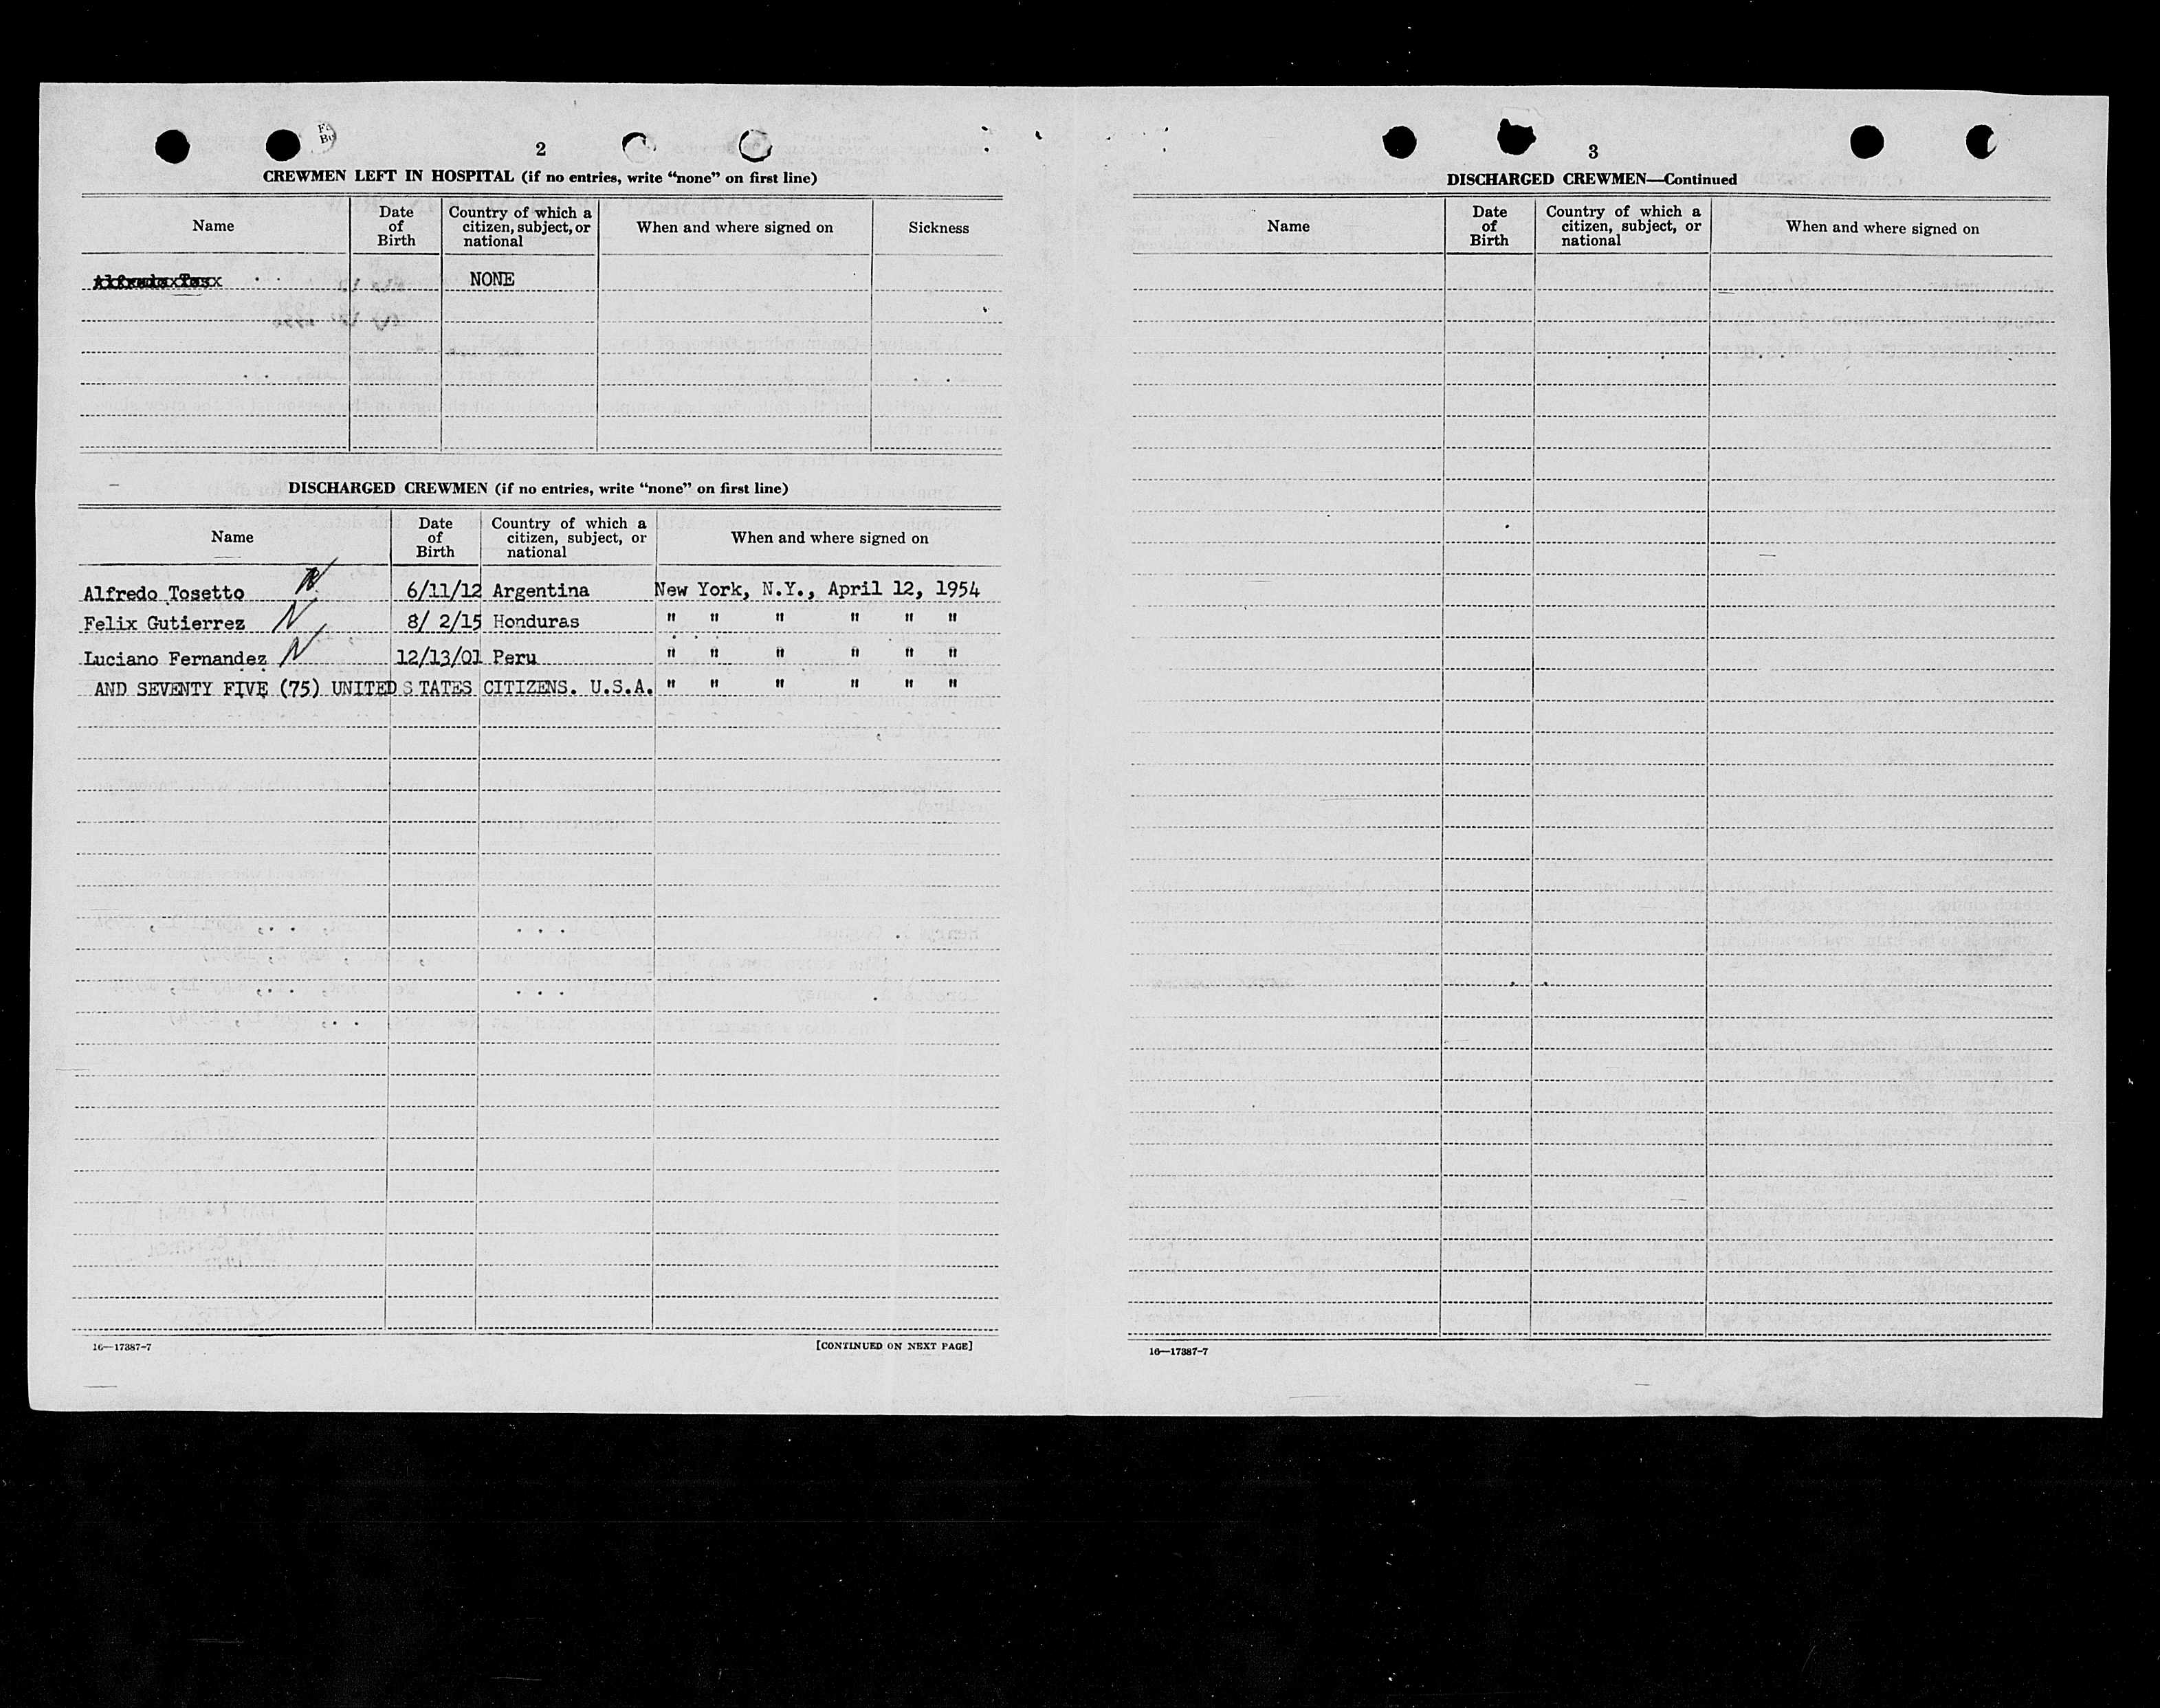 2
CREWMEN LEFT IN HOSPITAL (if no entries, write “none” on first line)
Name
Date of Birth
Country of which a citizen, subject, or national
When and where signed on
Sickness
NONE
DISCHARGED CREWMEN (if no entries, write “none” on first line)
Name
Date of Birth
Country of which a citizen, subject, or national
When and where signed on
Alfredo Tosetto N 6/11/12 Argentina New York, N.Y., April 12, 1954
Felix Gutierrez N 8/ 2/15 Honduras " " " " " "
Luciano Fernandez N 12/13/01 Peru " " " " " "
AND SEVENTY FIVE (75) UNITED STATES CITIZENS. U.S.A. " " " " " "
16—17387-7
[CONTINUED ON NEXT PAGE]
3
DISCHARGED CREWMEN—Continued
Name
Date of Birth
Country of which a citizen, subject, or national
When and where signed on
16—17387-7